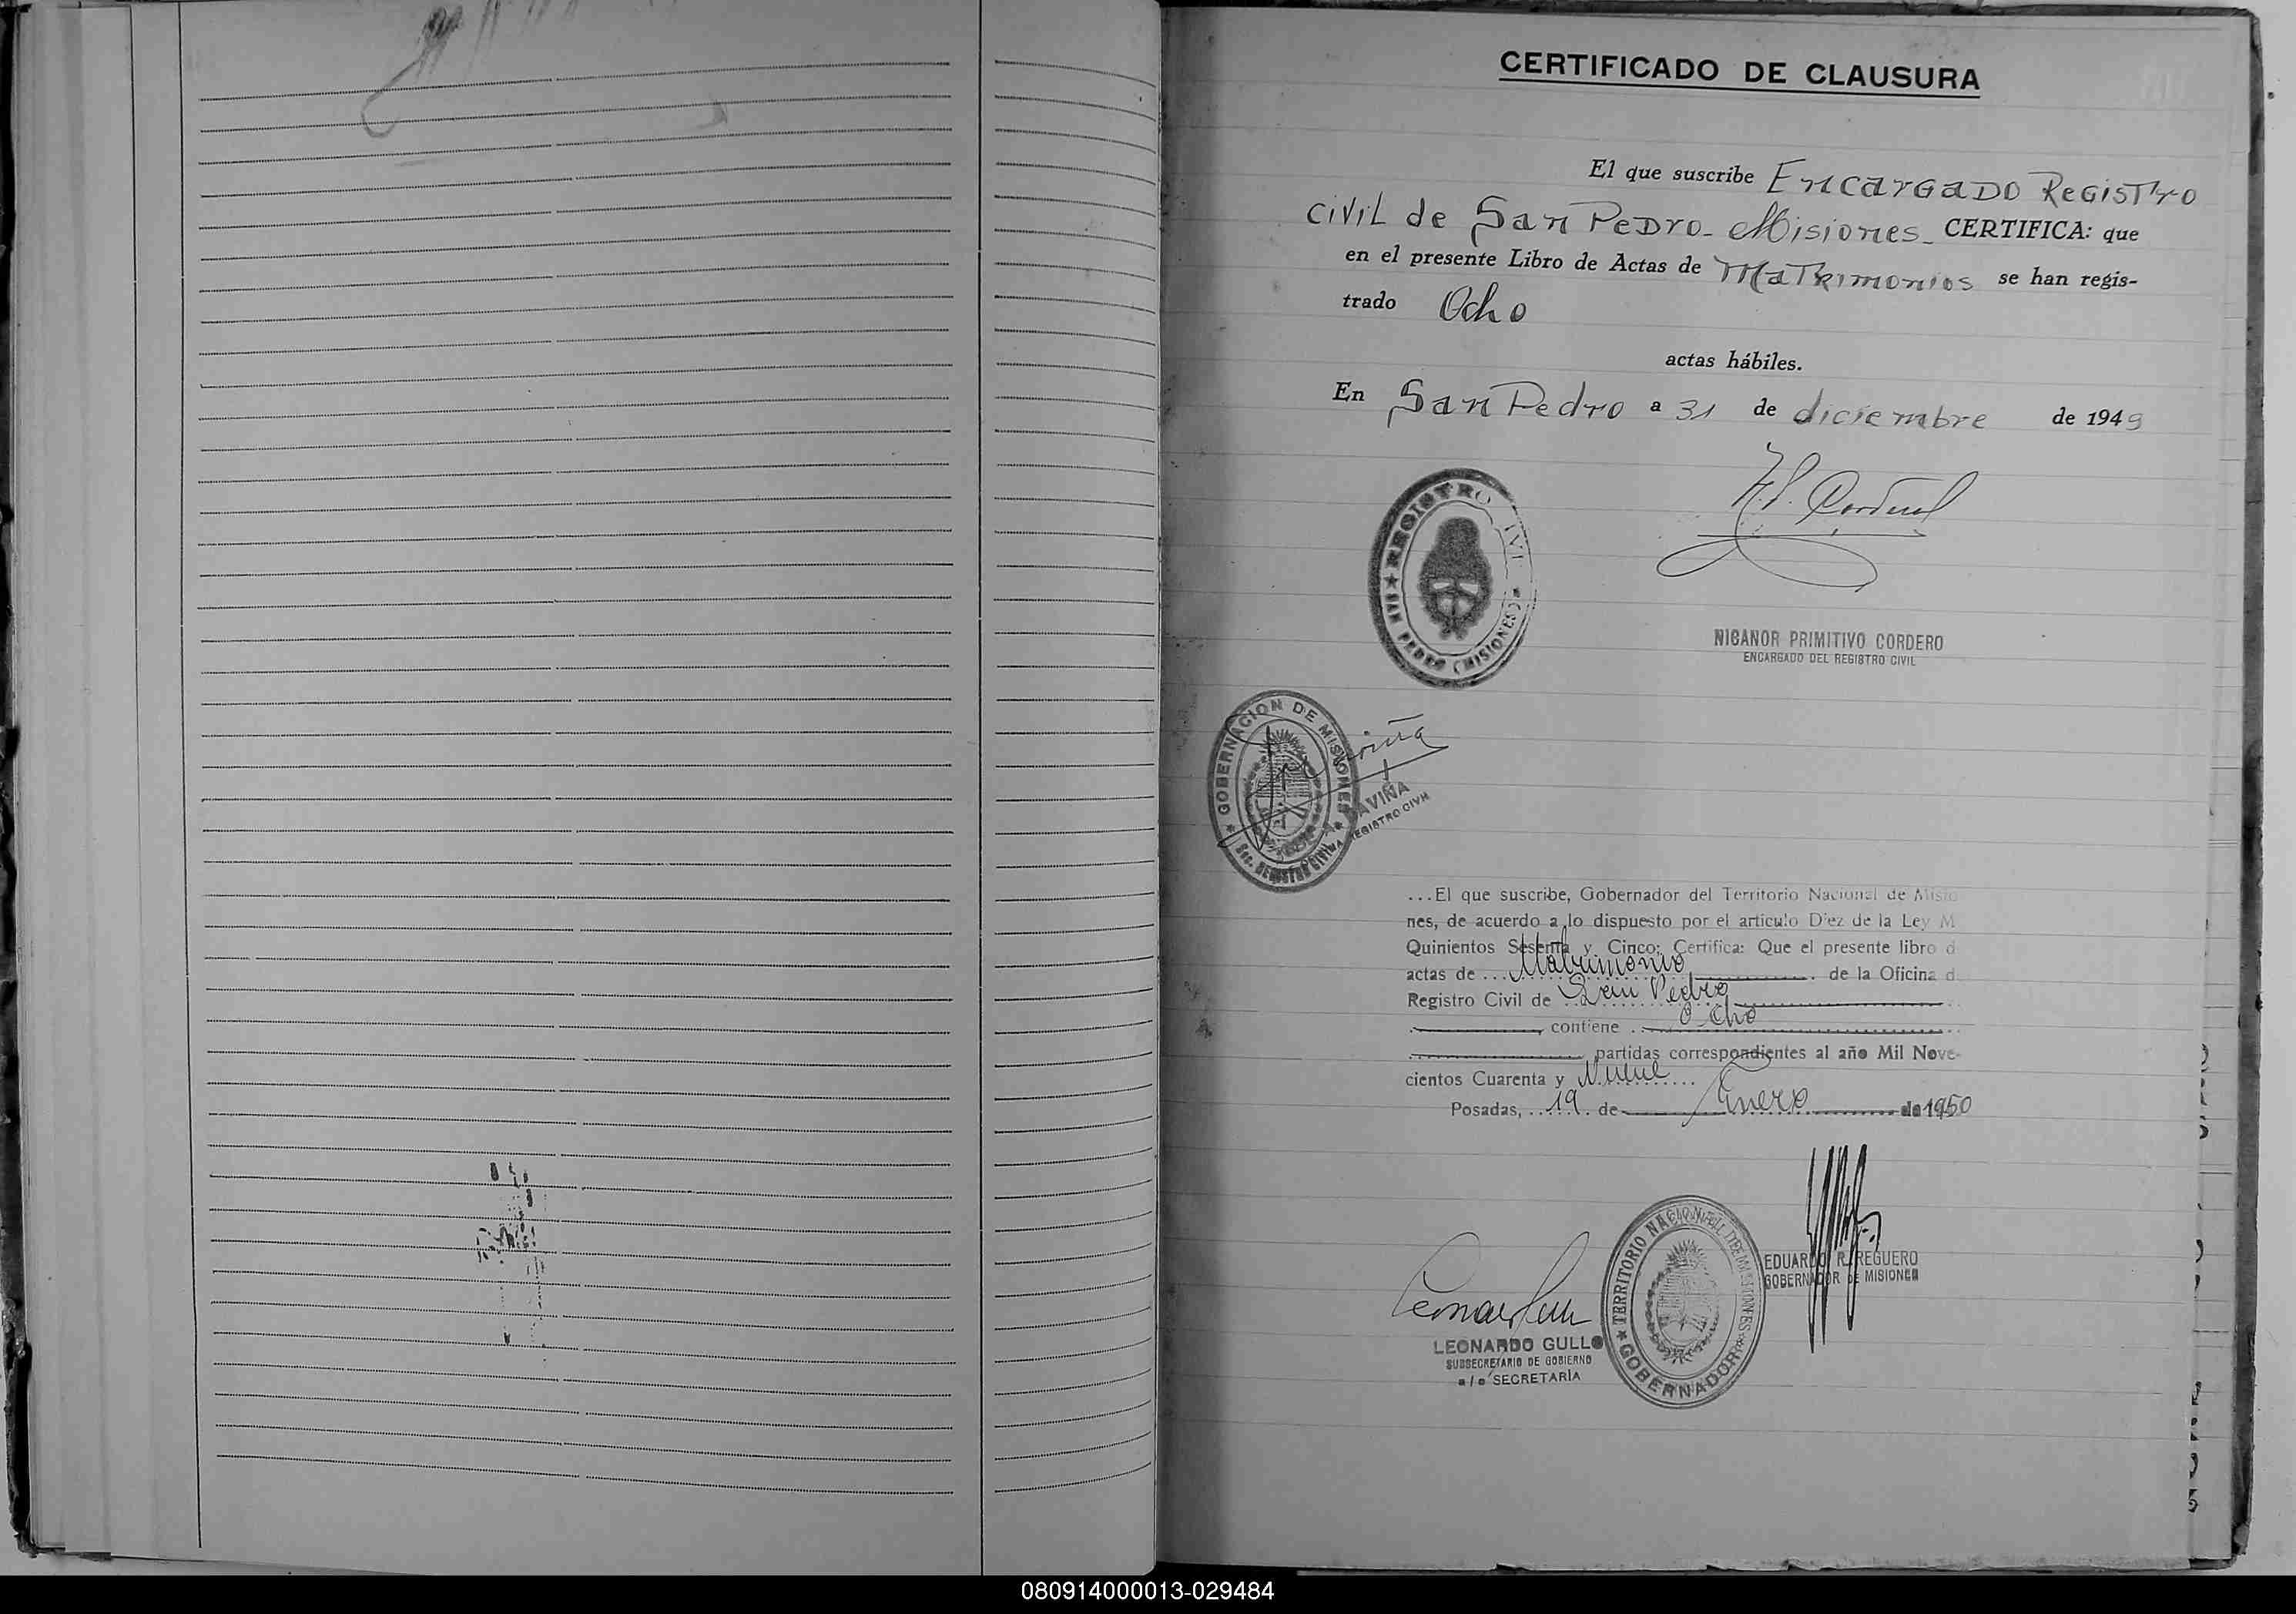 CERTIFICADO DE CLAUSURA
El que suscribe Encargado Registro
Civil de San Pedro - Misiones - CERTIFICA: que
en el presente Libro de Actas de Matrimonios se han regis-
trado Ocho
actas hábiles.
En San Pedro a 31 de diciembre de 1949
N. P. Cordero
REGISTRO CIVIL
★ SAN PEDRO (MISIONES) ★
NICANOR PRIMITIVO CORDERO
ENCARGADO DEL REGISTRO CIVIL
GOBERNACION DE MISIONES
★ Sec. REGISTRO CIVIL ★
AVIÑA
REGISTRO CIVIL
...El que suscribe, Gobernador del Territorio Nacional de Misio
nes, de acuerdo a lo dispuesto por el artículo Diez de la Ley M
Quinientos Sesenta y Cinco; Certifica: Que el presente libro d
actas de ... Matrimonio . de la Oficina d
Registro Civil de San Pedro
contiene Ocho
partidas correspondientes al año Mil Nove-
cientos Cuarenta y Nueve ...
Posadas, ... 19 . de Enero de 1950
TERRITORIO NACIONAL DE MISIONES
★ GOBERNADOR
EDUARDO R. REGUERO
GOBERNADOR DE MISIONES
LEONARDO GULLO
SUBSECRETARIO DE GOBIERNO
a/c SECRETARÍA
080914000013-029484